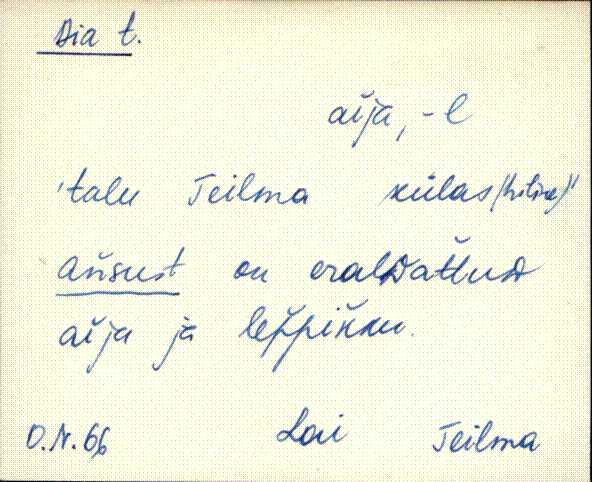 Aia t.
aĭja, -l
'talu Teilma külas (hiline)'
ańsust on eralDaťtuD
aĭja ja lep̆piḱku.
O.N. 66 Lai Teilma